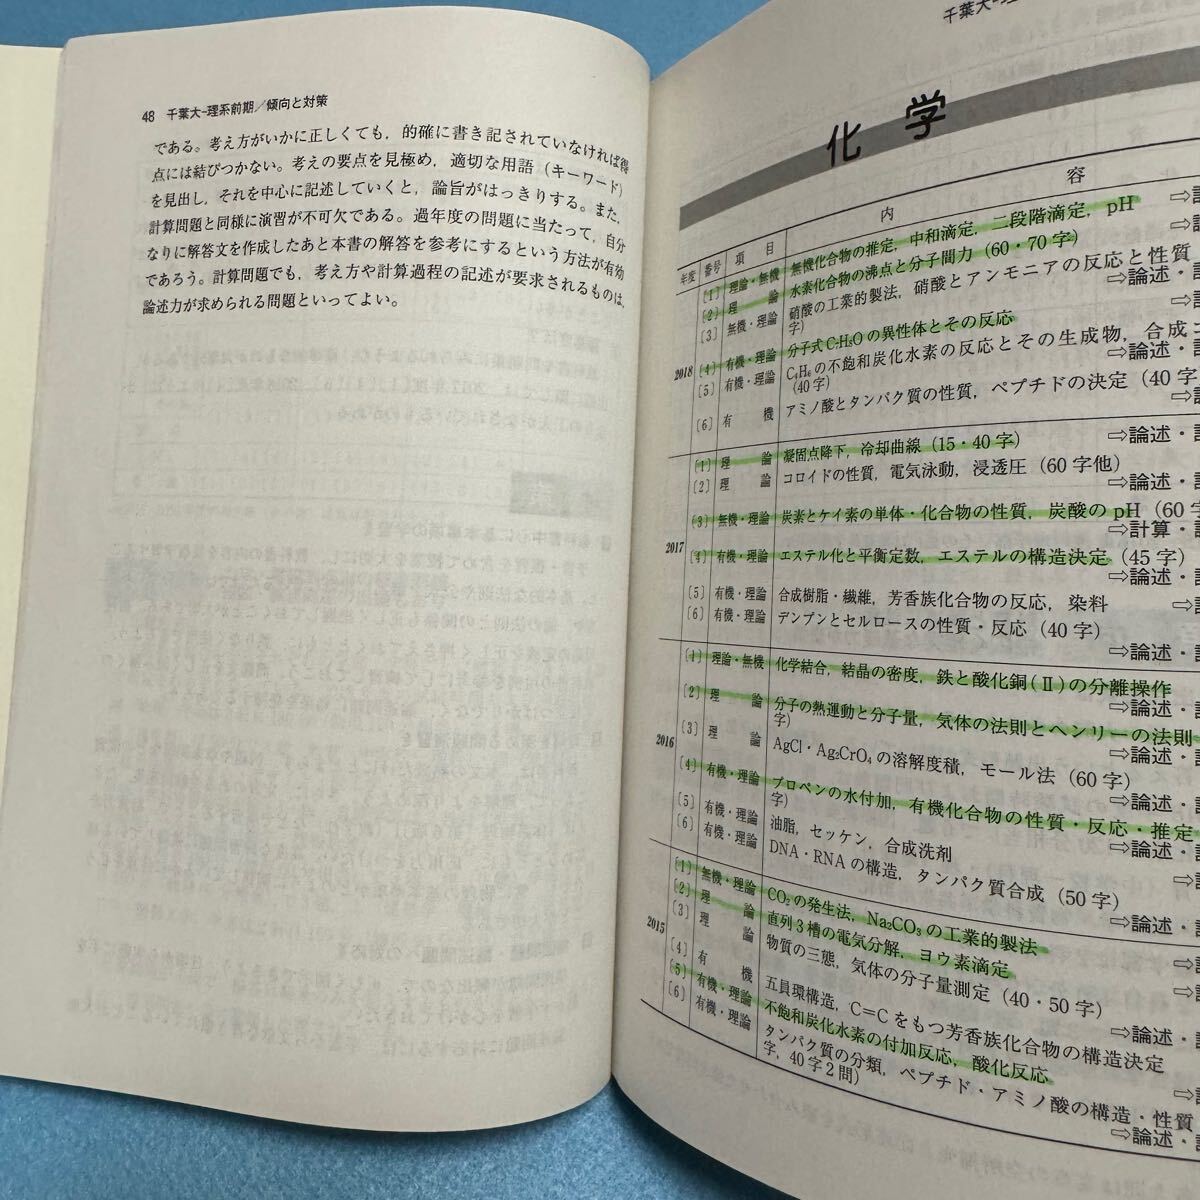 48 千葉大-理系前期／傾向と対策
である。考え方がいかに正しくても，的確に書き記されていなければ得
点には結びつかない。考えの要点を見極め，適切な用語（キーワード）
を見出し，それを中心に記述していくと，論旨がはっきりする。また，
計算問題と同様に演習が不可欠である。過年度の問題に当たって，自分
なりに解答文を作成したあと本書の解答を参考にするという方法が有効
であろう。計算問題でも，考え方や計算過程の記述が要求されるものは，
論述力が求められる問題といってよい。
千葉大-理
化 学
年度 番号 項 目 内 容
2018
〔1〕 理論・無機 無機化合物の推定，中和滴定，二段階滴定，pH
〔2〕 理 論 水素化合物の沸点と分子間力（60・70字）
〔3〕 無機・理論 硝酸の工業的製法，硝酸とアンモニアの反応と性質
字） ⇨論述・
〔4〕 有機・理論 分子式C₇H₈Oの異性体とその反応
〔5〕 有機・理論 C₄H₆の不飽和炭化水素の反応とその生成物，合成
（40字） ⇨論述・
〔6〕 有 機 アミノ酸とタンパク質の性質，ペプチドの決定（40字
2017
〔1〕 理 論 凝固点降下，冷却曲線（15・40字） ⇨論述・
〔2〕 理 論 コロイドの性質，電気泳動，浸透圧（60字他）
⇨論述・
〔3〕 無機・理論 炭素とケイ素の単体・化合物の性質，炭酸のpH（60
⇨計算・
〔4〕 有機・理論 エステル化と平衡定数，エステルの構造決定（45字）
⇨論述・
〔5〕 有機・理論 合成樹脂・繊維，芳香族化合物の反応，染料
〔6〕 有機・理論 デンプンとセルロースの性質・反応（40字）
⇨論述・
2016
〔1〕 理論・無機 化学結合，結晶の密度，鉄と酸化銅(Ⅱ)の分離操作
⇨論述・
〔2〕 理 論 分子の熱運動と分子量，気体の法則とヘンリーの法則
字） ⇨論述・
〔3〕 理 論 AgCl・Ag₂CrO₄の溶解度積，モール法（60字）
⇨論述・
〔4〕 有機・理論 プロペンの水付加，有機化合物の性質・反応・推定
字） ⇨論述・
〔5〕 有機・理論 油脂，セッケン，合成洗剤
〔6〕 有機・理論 DNA・RNAの構造，タンパク質合成（50字）
⇨論述・
2015
〔1〕 無機・理論 CO₂の発生法，Na₂CO₃の工業的製法
〔2〕 理 論 直列3槽の電気分解，ヨウ素滴定
〔3〕 理 論 物質の三態，気体の分子量測定（40・50字）
⇨論述・
〔4〕 有 機 五員環構造，C＝Cをもつ芳香族化合物の構造決定
〔5〕 有機・理論 不飽和炭化水素の付加反応，酸化反応
〔6〕 有機・理論 タンパク質の分類，ペプチド・アミノ酸の構造・性質
字，40字2問） ⇨論述・